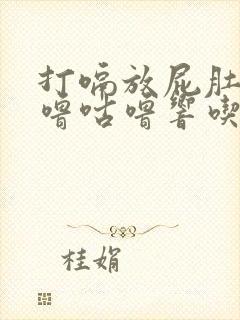 打嗝放屁肚
噜咕噜响喫
桂娟